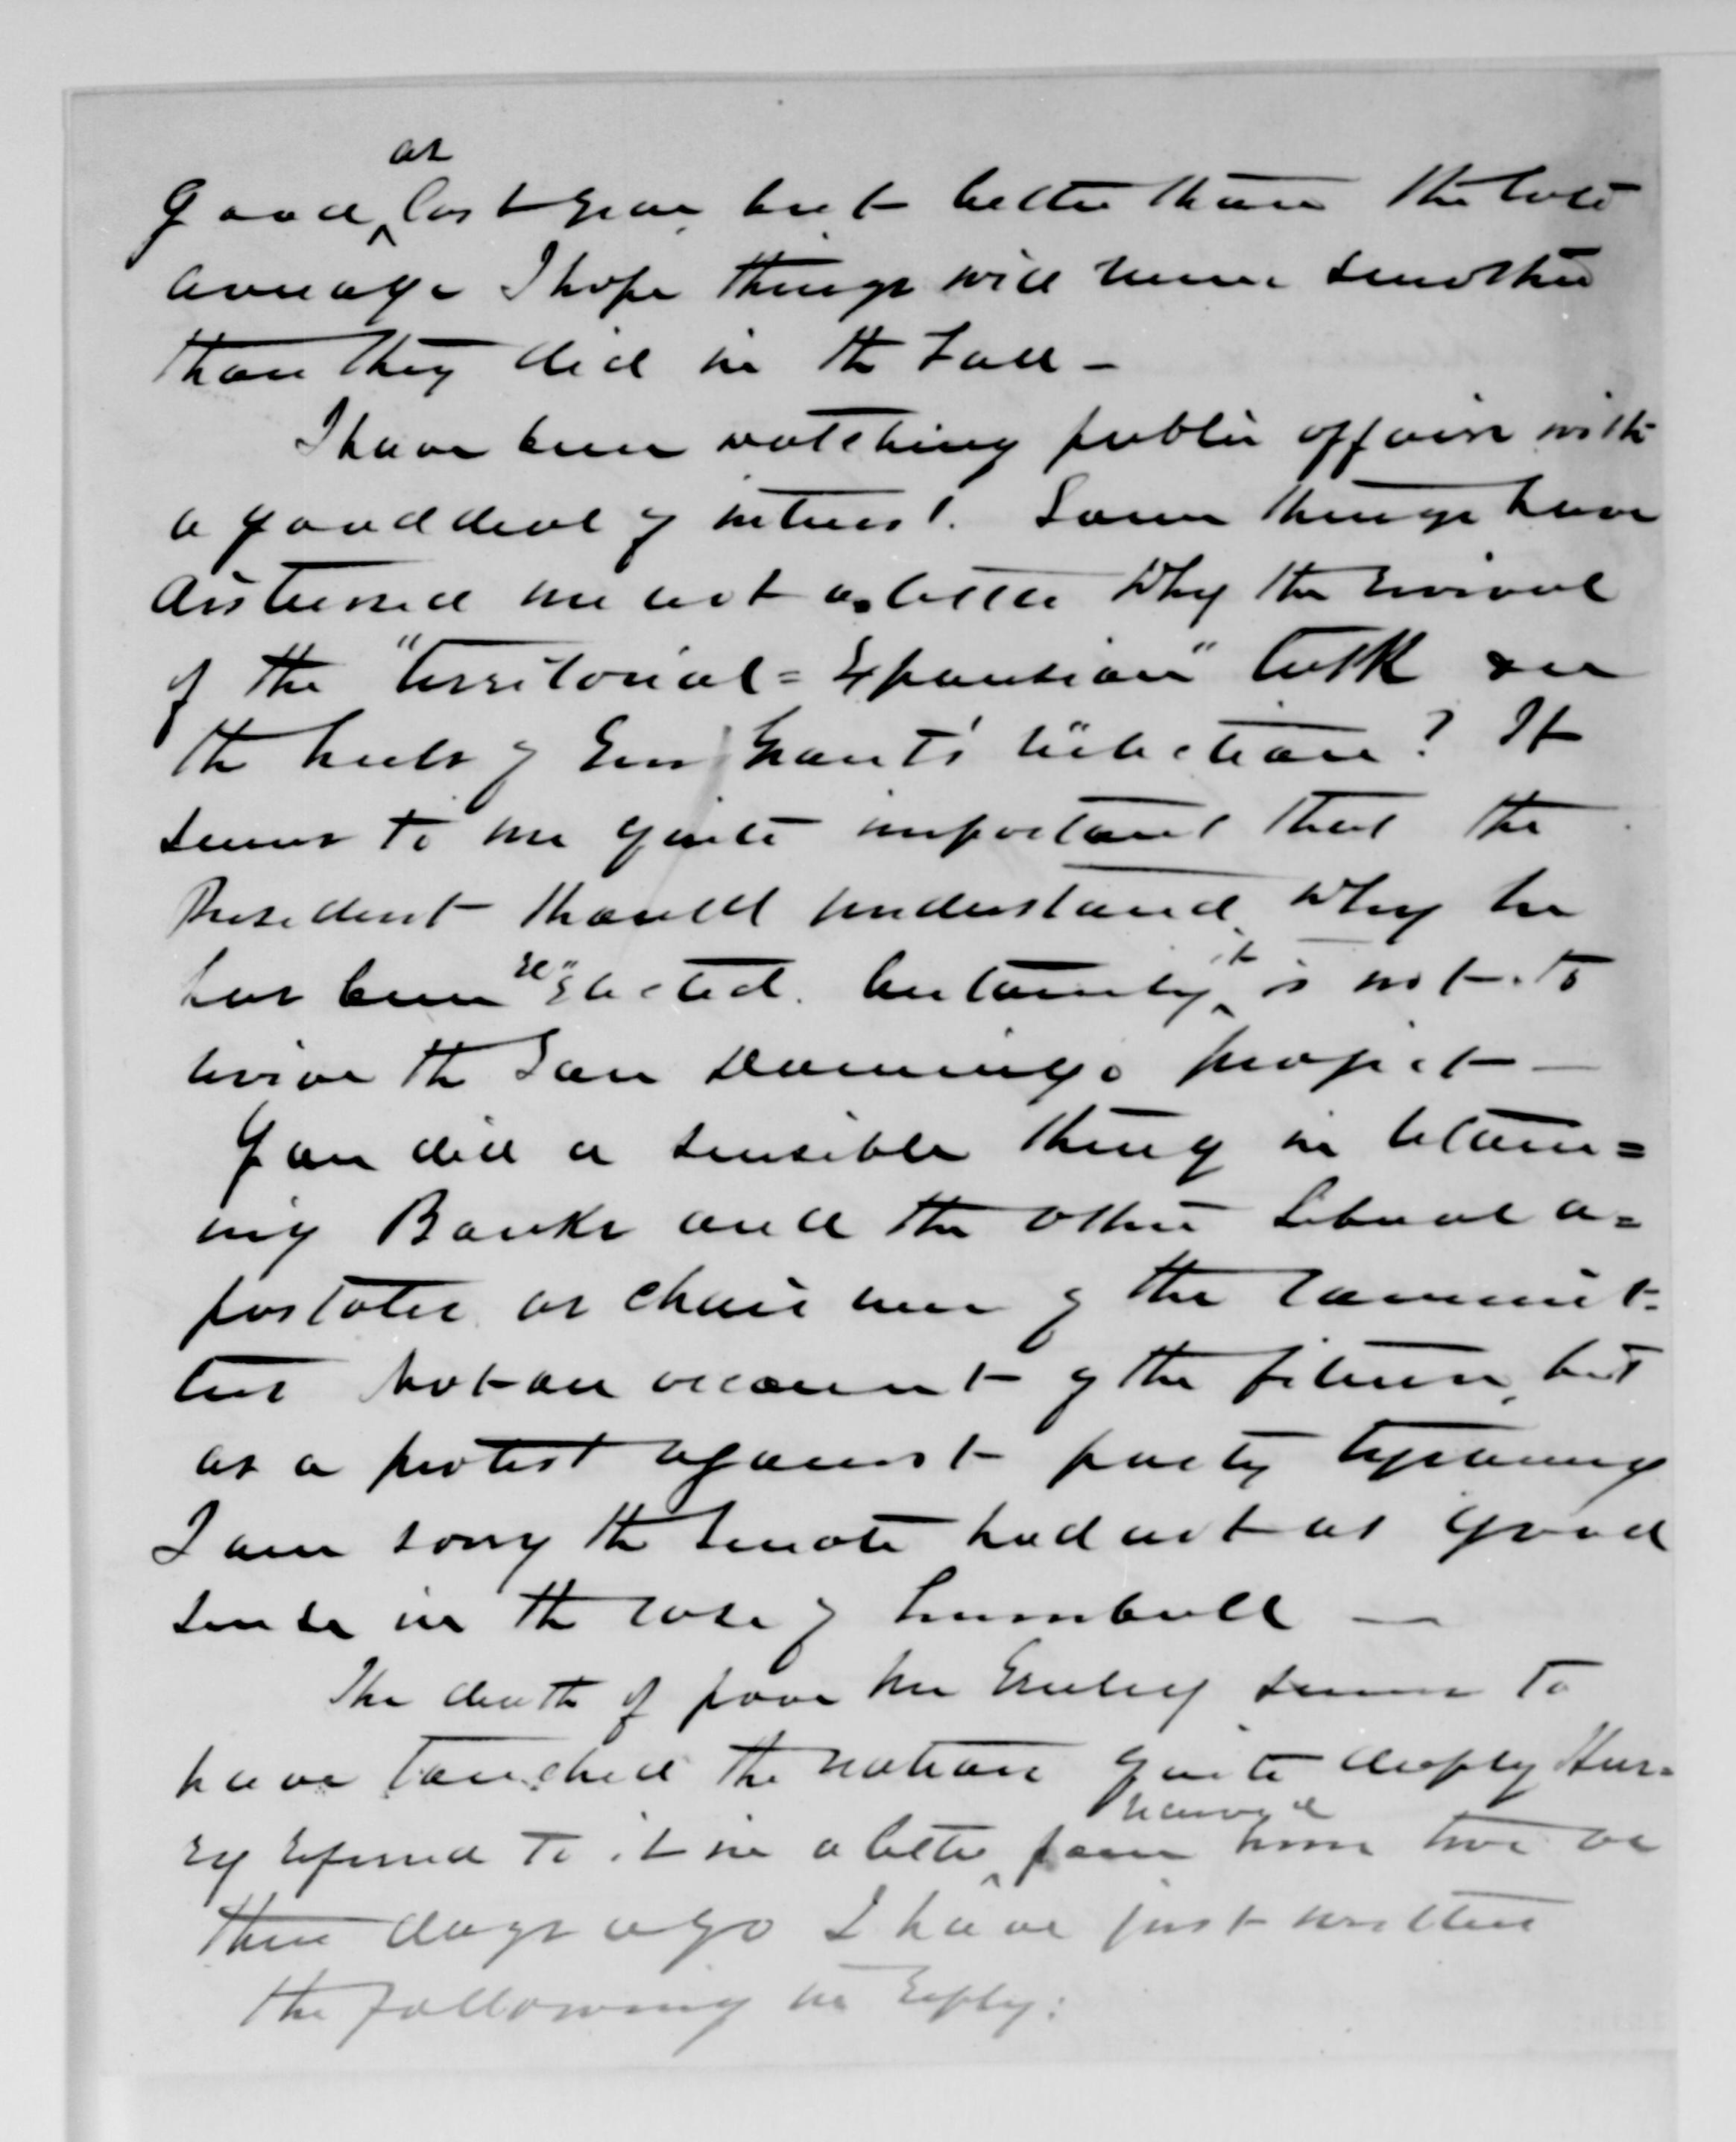 good ^as last year, but better than the
average I hope things will move smoother
than they did in the Fall –
I have been watching public affairs with
a good deal of interest. Some things have
distressed me not a little Why the revival
of the "Territorial = Expansion" talk on
the heels of Gen Grant's reëlection? It
seems to me quite important that the
President should understand why he
has been reëlected. Certainly ^it is not to
revive the San Domingo project –
You did a sensible thing in retain=
ing Banks and the other Liberal a=
postates as chairmen of the commit-
tees not on account of the fitness, but
as a protest against party tyranny
I am sorry the Senate had not as good
sense in the case of Trumbull –
The death of poor Mr Greeley seems to
have touched the nation quite deeply Har=
ry referred to it in a letter ^received from him two or
three days ago I have just written
the following in reply: